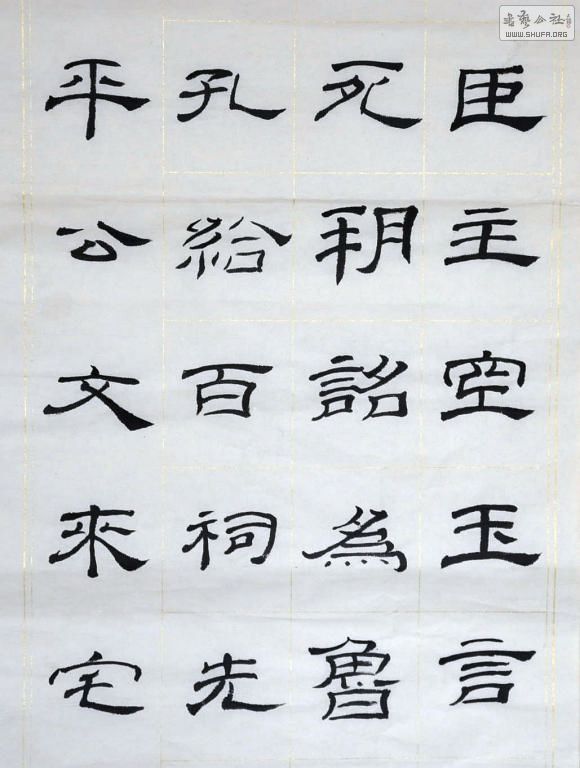 臣主空玉言
死詔為魯
孔給百祠先
平公文來宅
书艺公社
WWW.SHUFA.ORG